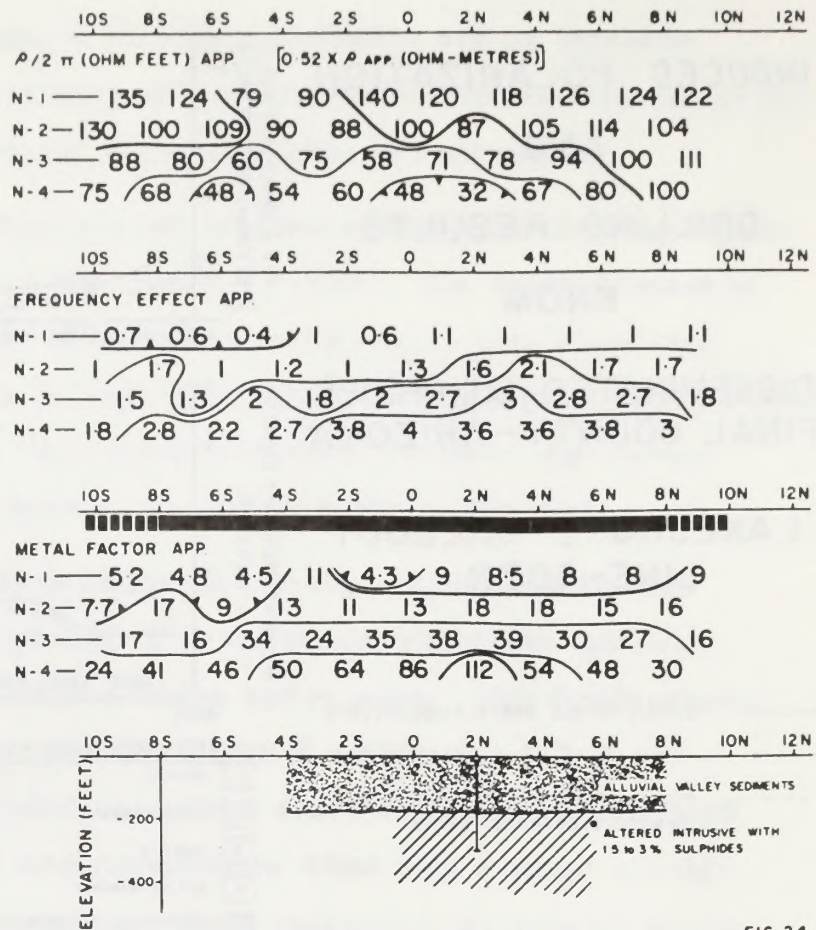 10S 8S 6S 4S 2S 0 2N 4N 6N 8N 10N 12N
ρ/2 π (OHM FEET) APP. [0·52 X ρ APP. (OHM-METRES)]
N-1 — 135 124 79 90 140 120 118 126 124 122
N-2 — 130 100 109 90 88 100 87 105 114 104
N-3 — 88 80 60 75 58 71 78 94 100 111
N-4 — 75 68 48 54 60 48 32 67 80 100
10S 8S 6S 4S 2S 0 2N 4N 6N 8N 10N 12N
FREQUENCY EFFECT APP.
N-1 — 0·7 0·6 0·4 1 0·6 1·1 1 1 1 1·1
N-2 — 1 1·7 1 1·2 1 1·3 1·6 2·1 1·7 1·7
N-3 — 1·5 1·3 2 1·8 2 2·7 3 2·8 2·7 1·8
N-4 — 1·8 2·8 22 2·7 3·8 4 3·6 3·6 3·8 3
10S 8S 6S 4S 2S 0 2N 4N 6N 8N 10N 12N
METAL FACTOR APP.
N-1 — 5·2 4·8 4·5 11 4·3 9 8·5 8 8 9
N-2 — 7·7 17 9 13 11 13 18 18 15 16
N-3 — 17 16 34 24 35 38 39 30 27 16
N-4 — 24 41 46 50 64 86 112 54 48 30
10S 8S 6S 4S 2S 0 2N 4N 6N 8N 10N 12N
ELEVATION (FEET)
ALLUVIAL VALLEY SEDIMENTS
-200
ALTERED INTRUSIVE WITH
1·5 to 3% SULPHIDES
-400